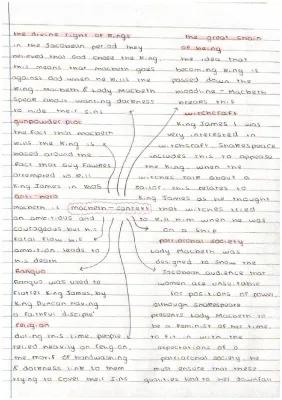 the divine right of kings
in the Jacobean period they
believed that God chose the King.
this means that macbeth goes
against God when he kills the
King. Macbeth & Lady Macbeth
speak about wanting darkness
to hide their sins
gunpowder plot
the fact that macbeth
kills the King is
based around the
fact that Guy Fawkes
attempted to kill
King James in 1605
anti-hero
macbeth is
an ambitious and
courageous but his
fatal flaw is
ambition leads to
his death
Banquo
Banquo was used to
flatter King James, by
King Duncan having
a faithful disciple
religion
during this time, people
relied heavily on religion,
the motif of handwashing
& darkness link to them
trying to cover their sins
macbeth - context
the great chain
of being
the idea that
becoming King is
passed down the
bloodline - Macbeth
breaks this
witchcraft
King James I was
very interested in
witchcraft. Shakespeare
includes this to appease
the King. when the
witches talk about a
sailor this relates to
King James as he thought
that witches tried
to kill him when he was
on a ship
patriarchal society
Lady Macbeth was
designed to show the
Jacobean audience that
women are unsuitable
for positions of power
although Shakespeare
presents Lady Macbeth to
be a feminist of her time.
to fit in with the
expectations of a
patriarchal society he
must ensure that these
qualities lead to her downfall